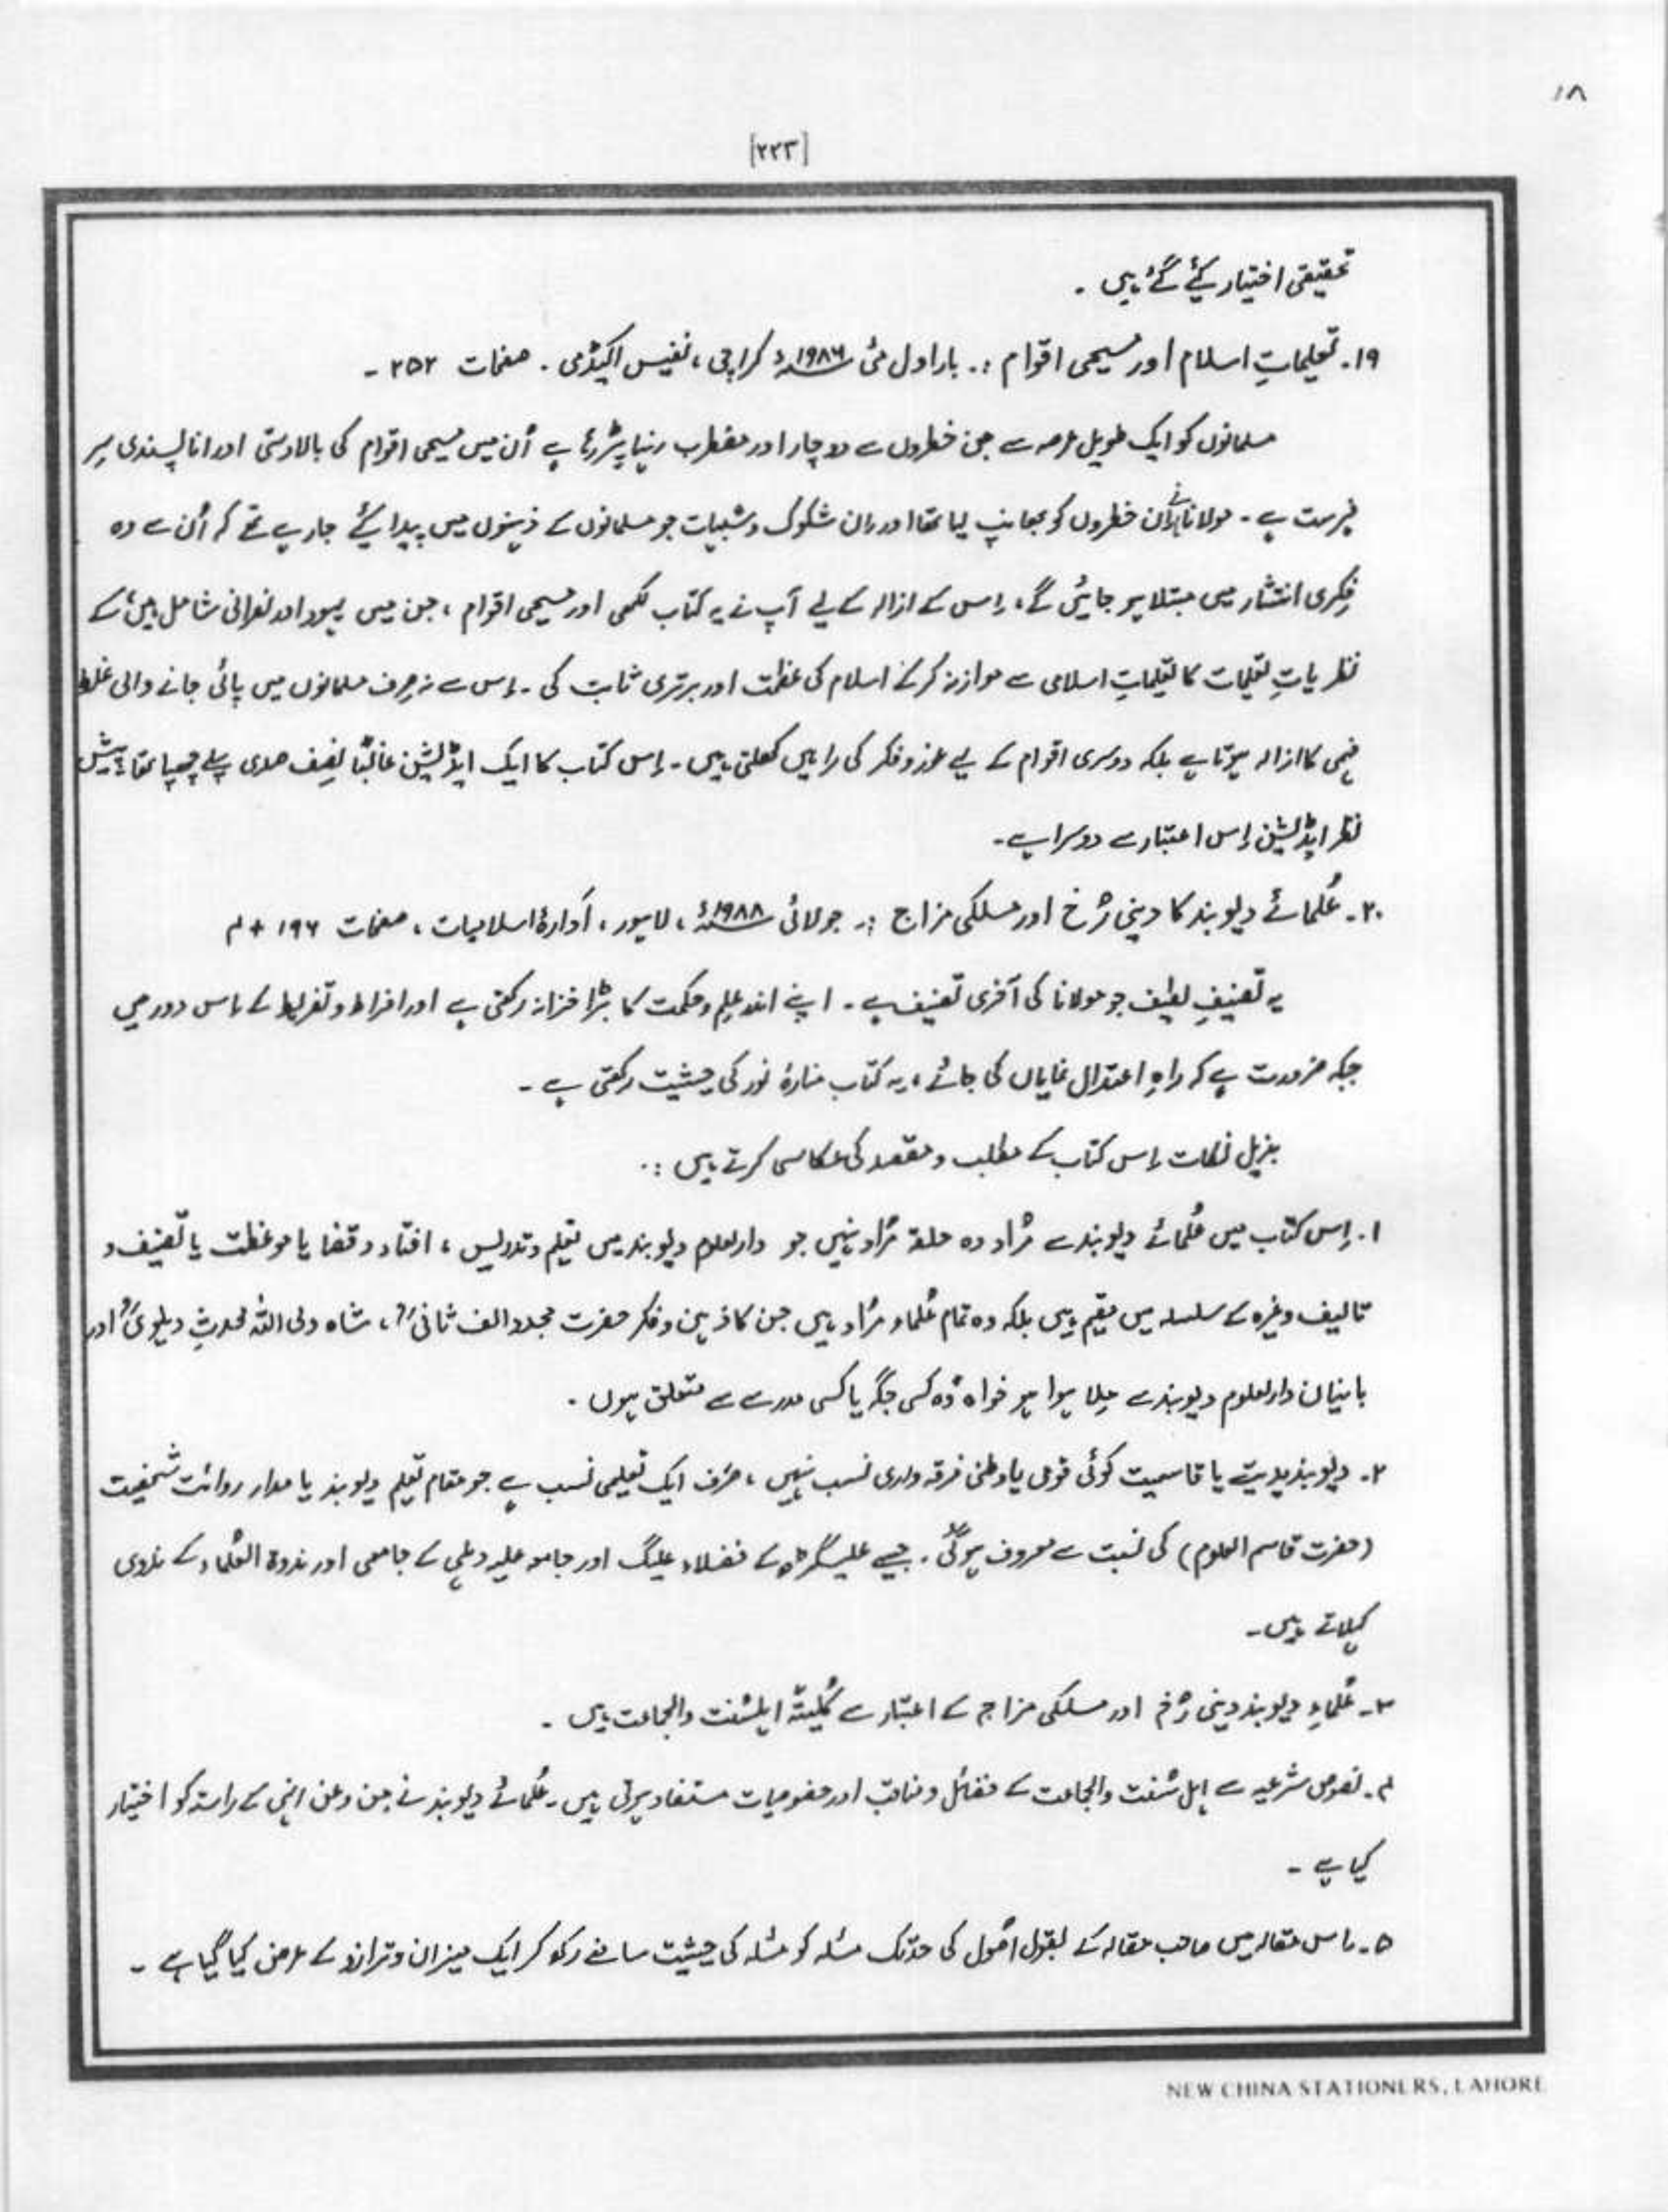 ۱۸
[۲۲۳]
تحقیقی اختیار کیٔے گئے ہیں ۔
۱۹۔ تعلیماتِ اسلام اور مسیحی اقوام :۔ بار اول مئی ۱۹۸۶ء کراچی ، نفیس اکیڈمی ۔ صفحات ۲۵۲ ۔
مسلمانوں کو ایک طویل عرصہ سے جن خطروں سے دوچار اور مضطرب رہنا پڑ رہا ہے اُن میں مسیحی اقوام کی بالادستی اور انا پسندی سرِ
فہرست ہے ۔ مولانا نے اِن خطروں کو بھانپ لیا تھا اور اِن شکوک و شبہات جو مسلمانوں کے ذہنوں میں پیدا کیٔے جا رہے تھے کہ اُن سے وہ
فِکری انتشار میں مبتلا ہو جائیں گے ، اِس کے ازالہ کے لیے آپ نے یہ کتاب لکھی اور مسیحی اقوام ، جن میں یہود اور نصرانی شامل ہیں ، کے
نظریاتِ تعلیمات کا تعلیماتِ اسلامی سے موازنہ کرکے اسلام کی عظمت اور برتری ثابت کی ۔ اِس سے نہ صِرف مسلمانوں میں پائی جانے والی غلط
فہمی کا ازالہ ہوتا ہے بلکہ دوسری اقوام کے لیے غور و فکر کی راہیں کھلتی ہیں ۔ اِس کتاب کا ایک ایڈیشن غالباً نِصف صدی پہلے چھپا تھا ۔ پیش
نظر ایڈیشن اِس اعتبار سے دوسرا ہے ۔
۲۰۔ عُلمائے دیوبند کا دینی رُخ اور مسلکی مزاج :۔ جولائی ۱۹۸۸ء ، لاہور ، اَدارۂ اسلامیات ، صفحات ۱۹۶ + ۴
یہ تصنیفِ لطیف جو مولانا کی آخری تصنیف ہے ۔ اپنے اندر عِلم و حکمت کا بڑا خزانہ رکھتی ہے اور افراط و تفریط کے اِس دور میں
جبکہ ضرورت ہے کہ راہِ اعتدال نمایاں کی جائے ، یہ کتاب منارۂ نور کی حیثیت رکھتی ہے ۔
بذیل نکات اِس کتاب کے مطلب و مقصد کی عکاسی کرتے ہیں :۔
۱۔ اِس کتاب میں عُلمائے دیوبند سے مُراد وہ حلقہ مُراد نہیں جو دارالعلوم دیوبند میں تعلیم و تدریس ، افتاء و قضا یا موعظت یا تصنیف و
تالیف وغیرہ کے سلسلہ میں مقیم ہیں بلکہ وہ تمام عُلماء مُراد ہیں جن کا ذہن و فکر حضرت مجدد الف ثانیؒ ، شاہ ولی اللہ محدثِ دہلویؒ اور
بانیان دارالعلوم دیوبند سے مِلا ہوا ہو خواہ وُہ کسی جگہ یا کسی مدرسے سے متعلق ہوں ۔
۲۔ دیوبندیدیت یا قاسمیت کوئی قومی یا وطنی فرقہ واری نسب نہیں ، صَرف ایک تعلیمی نسب ہے جو مقام تعلیم دیوبند یا مدار روائت شخصیت
(حضرت قاسم العلوم) کی نسبت سے معروف ہوگئی ۔ جیسے علیگڑھ کے فضلاء علیگ اور جامعہ ملیہ دہلی کے جامعی اور ندوۃ العُلماء کے ندوی
کہلاتے ہیں ۔
۳۔ عُلماءِ دیوبند دینی رُخ اور مسلکی مزاج کے اعتبار سے کُلیتہً اہلسُنت والجماعت ہیں ۔
۴۔ نصوصِ شرعیہ سے اہلِ سُنت والجماعت کے فضائل و مناقب اور خصوصیات مستفاد ہوتی ہیں ۔ عُلمائے دیوبند نے من و عن انہی کے راستہ کو اختیار
کیا ہے ۔
۵۔ اِس مقالہ میں صاحب مقالہ کے بقول اُصول کی حد تک مسٔلہ کو مسٔلہ کی حیثیت سامنے رکھ کر ایک میزان و ترازو کے عرض کیا گیا ہے ۔
NEW CHINA STATIONERS, LAHORE